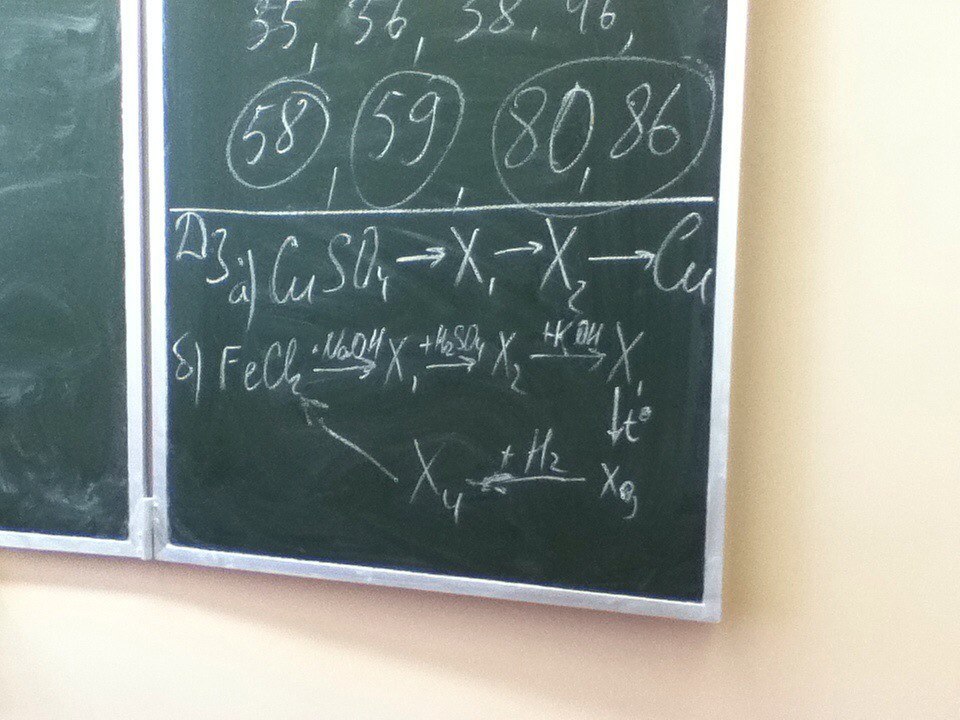 35, 36, 38, 46,
58, 59, 80, 86
ДЗ а) CuSO₄ → X₁ → X₂ → Cu
б) FeCl₂ +NaOH → X₁ +H₂SO₄ → X₂ +KOH → X₁
↓t°
X₄ ← +H₂ X₃